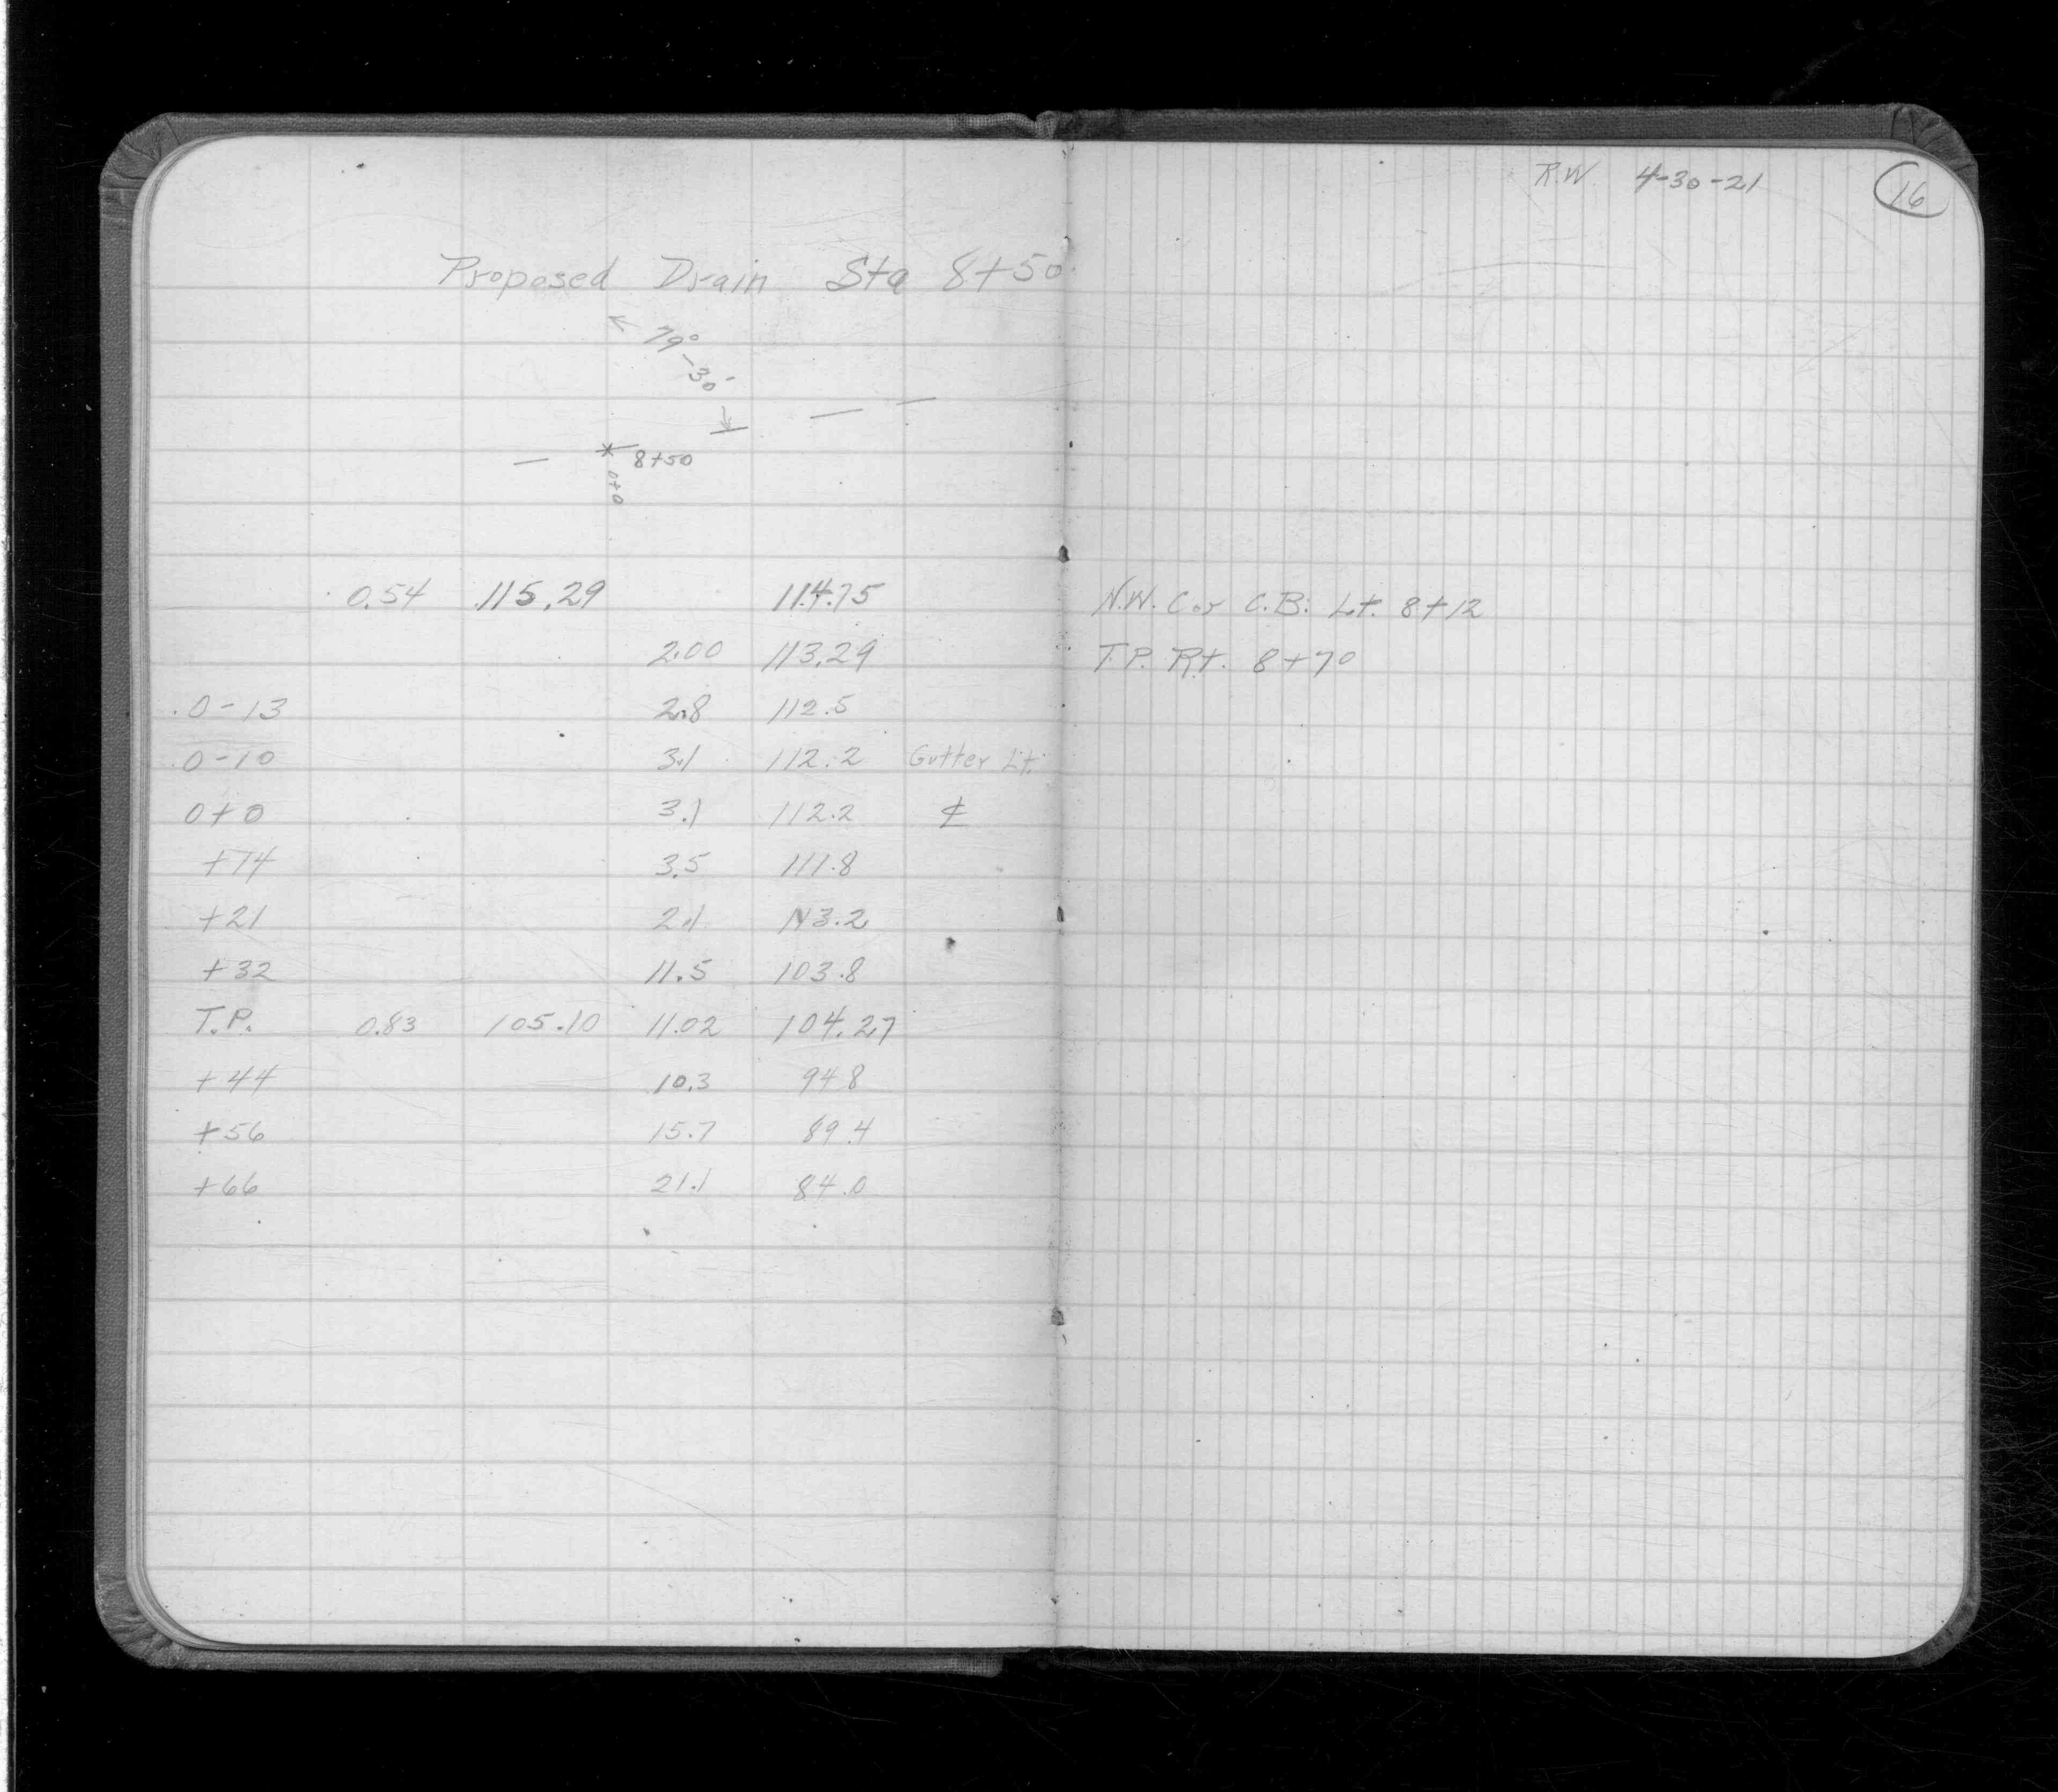 R.W. 4-30-21 16
Proposed Drain Sta 8+50
79°
-30'
8+50
0+0
0.54 115.29 114.75 N.W. Cor C.B. Lt. 8+12
2.00 113.29 T.P. Rt. 8+70
0-13 2.8 112.5
0-10 3.1 112.2 Gutter Lt.
0+0 3.1 112.2 ℄
+74 3.5 111.8
+21 2.1 113.2
+32 11.5 103.8
T.P. 0.83 105.10 11.02 104.27
+44 10.3 94.8
+56 15.7 89.4
+66 21.1 84.0